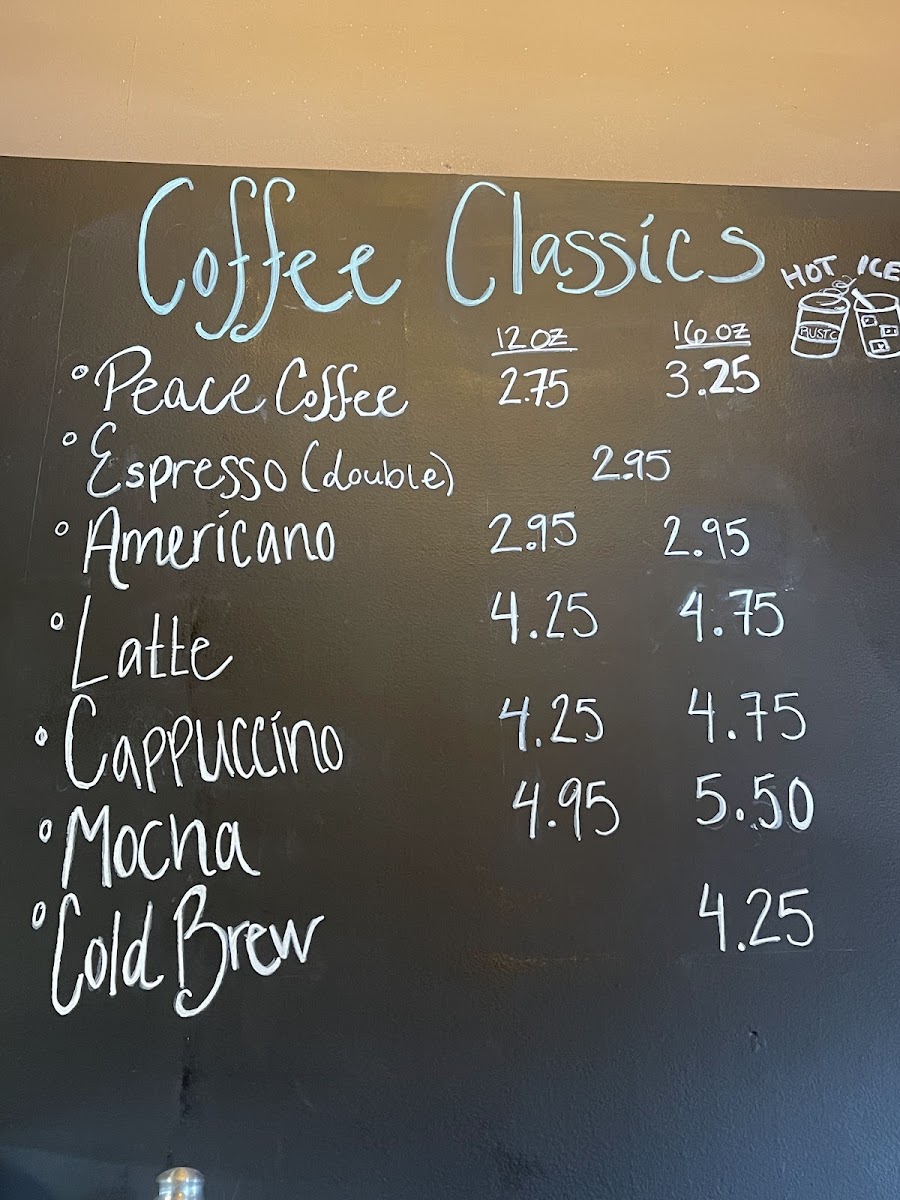 Coffee Classics
HOT ICE
RUSTC
12 oz 16 oz
Peace Coffee 2.75 3.25
Espresso (double) 2.95
Americano 2.95 2.95
Latte 4.25 4.75
Cappuccino 4.25 4.75
Mocha 4.95 5.50
Cold Brew 4.25